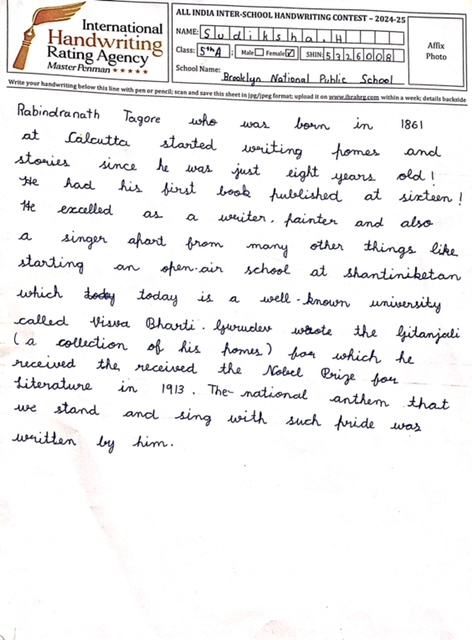 International
Handwriting
Rating Agency
Master Penman ★★★★★
ALL INDIA INTER-SCHOOL HANDWRITING CONTEST – 2024-25
NAME: Sudiksha.H
Class: 5th A Male Female ✓ SHIN: 5326008
School Name: Brooklyn National Public School
Affix
Photo
Write your handwriting below this line with pen or pencil; scan and save this sheet in jpg/jpeg format; upload it on www.ihrahrg.com within a week; details backside
Rabindranath Tagore who was born in 1861
at Calcutta started writing pomes and
stories since he was just eight years old!
He had his first book published at sixteen!
He excelled as a writer, painter and also
a singer apart from many other things like
starting an open-air school at shantiniketan
which today is a well-known university
called Visva Bharti. Gurudev wrote the Gitanjali
(a collection of his pomes) for which he
received the, received the Nobel Prize for
Literature in 1913. The national anthem that
we stand and sing with such pride was
written by him.